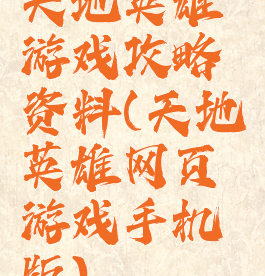 天地英雄
游戏攻略
资料(天地
英雄网页
游戏手机
版)